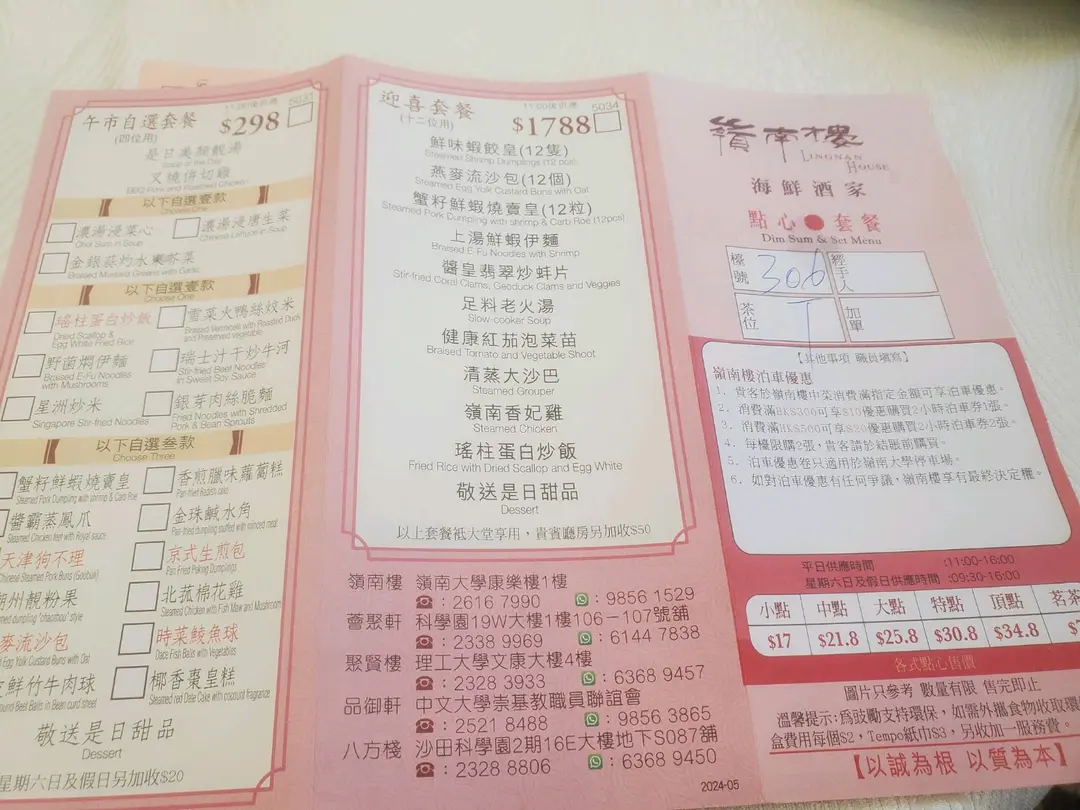 午市自選套餐
(四位用)
11:00後供應
5031
$298
是日美顏靚湯
Soup of the Day
叉燒併切雞
BBQ Pork and Poached Chicken
以下自選壹款
Choose One
濃湯浸菜心
Choi Sum in Soup
濃湯浸唐生菜
Chinese Lettuce in Soup
金銀蒜灼水東芥菜
Braised Mustard Greens with Garlic
以下自選壹款
Choose One
瑤柱蛋白炒飯
Dried Scallop &
Egg White Fried Rice
雪菜火鴨絲炆米
Braised Vermicelli with Roasted Duck
and Preserved vegetable
野菌燜伊麵
Braised E-Fu Noodles
with Mushrooms
瑞士汁干炒牛河
Stir-fried Beef Noodles
in Sweet Soy Sauce
星洲炒米
Singapore Stir-fried Noodles
銀芽肉絲脆麵
Fried Noodles with Shredded
Pork & Bean Sprouts
以下自選叁款
Choose Three
蟹籽鮮蝦燒賣皇
Steamed Pork Dumpling with shrimp & Carb Roe
香煎臘味蘿蔔糕
Pan-fried Radish cake
醬霸蒸鳳爪
Steamed Chicken feet with Royal sauce
金珠鹹水角
Pan fried dumpling stuffed with minced meat
天津狗不理
Chinese Steamed Pork Buns (Goubuli)
京式生煎包
Pan Fried Peking Dumplings
潮州靚粉果
Steamed dumpling "chaozhou" style
北菰棉花雞
Steamed Chicken with Fish Maw and Mushroom
麥流沙包
Egg Yolk Custard Buns with Oat
時菜鯪魚球
Dace Fish Balls with Vegetables
鮮竹牛肉球
Beef Balls in Bean curd sheet
椰香棗皇糕
Steamed red Date Cake with coconut fragrance
敬送是日甜品
Dessert
星期六日及假日另加收$20
迎喜套餐
(十二位用)
11:00後供應
5034
$1788
鮮味蝦餃皇(12隻)
Steamed Shrimp Dumplings (12 pcs)
燕麥流沙包(12個)
Steamed Egg Yolk Custard Buns with Oat
蟹籽鮮蝦燒賣皇(12粒)
Steamed Pork Dumpling with shrimp & Carb Roe (12pcs)
上湯鮮蝦伊麵
Braised E Fu Noodles with Shrimp
醬皇翡翠炒蚌片
Stir-fried Coral Clams, Geoduck Clams and Veggies
足料老火湯
Slow-cooker Soup
健康紅茄泡菜苗
Braised Tomato and Vegetable Shoot
清蒸大沙巴
Steamed Grouper
嶺南香妃雞
Steamed Chicken
瑤柱蛋白炒飯
Fried Rice with Dried Scallop and Egg White
敬送是日甜品
Dessert
以上套餐祗大堂享用，貴賓廳房另加收$50
嶺南樓 嶺南大學康樂樓1樓
☎：2616 7990 ：9856 1529
薈聚軒 科學園19W大樓1樓106－107號舖
☎：2338 9969 ：6144 7838
聚賢樓 理工大學文康大樓4樓
☎：2328 3933 ：6368 9457
品御軒 中文大學崇基教職員聯誼會
☎：2521 8488 ：9856 3865
八方棧 沙田科學園2期16E大樓地下S087舖
☎：2328 8806 ：6368 9450
2024-05
嶺南樓
LINGNAN
HOUSE
海鮮酒家
點心●套餐
Dim Sum & Set Menu
檯號
306
經手人
茶位
T
加單
【其他事項 職員填寫】
嶺南樓泊車優惠
1. 貴客於嶺南樓中菜消費滿指定金額可享泊車優惠。
2. 消費滿HK$300可享$10優惠購買2小時泊車券1張。
3. 消費滿HK$500可享$20優惠購買2小時泊車券2張。
4. 每檯限購2張，貴客請於結賬前購買。
5. 泊車優惠卷只適用於嶺南大學停車場。
6. 如對泊車優惠有任何爭議，嶺南樓享有最終決定權。
平日供應時間 :11:00-16:00
星期六日及假日供應時間 :09:30-16:00
小點 中點 大點 特點 頂點 茗茶
$17 $21.8 $25.8 $30.8 $34.8
各式點心售價
圖片只參考 數量有限 售完即止
溫馨提示:為鼓勵支持環保，如需外攜食物收取環
盒費用每個$2，Tempo紙巾$3，另收加一服務費。
【以誠為根 以質為本】